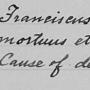 Franciscus
mortuus et
Cause of de